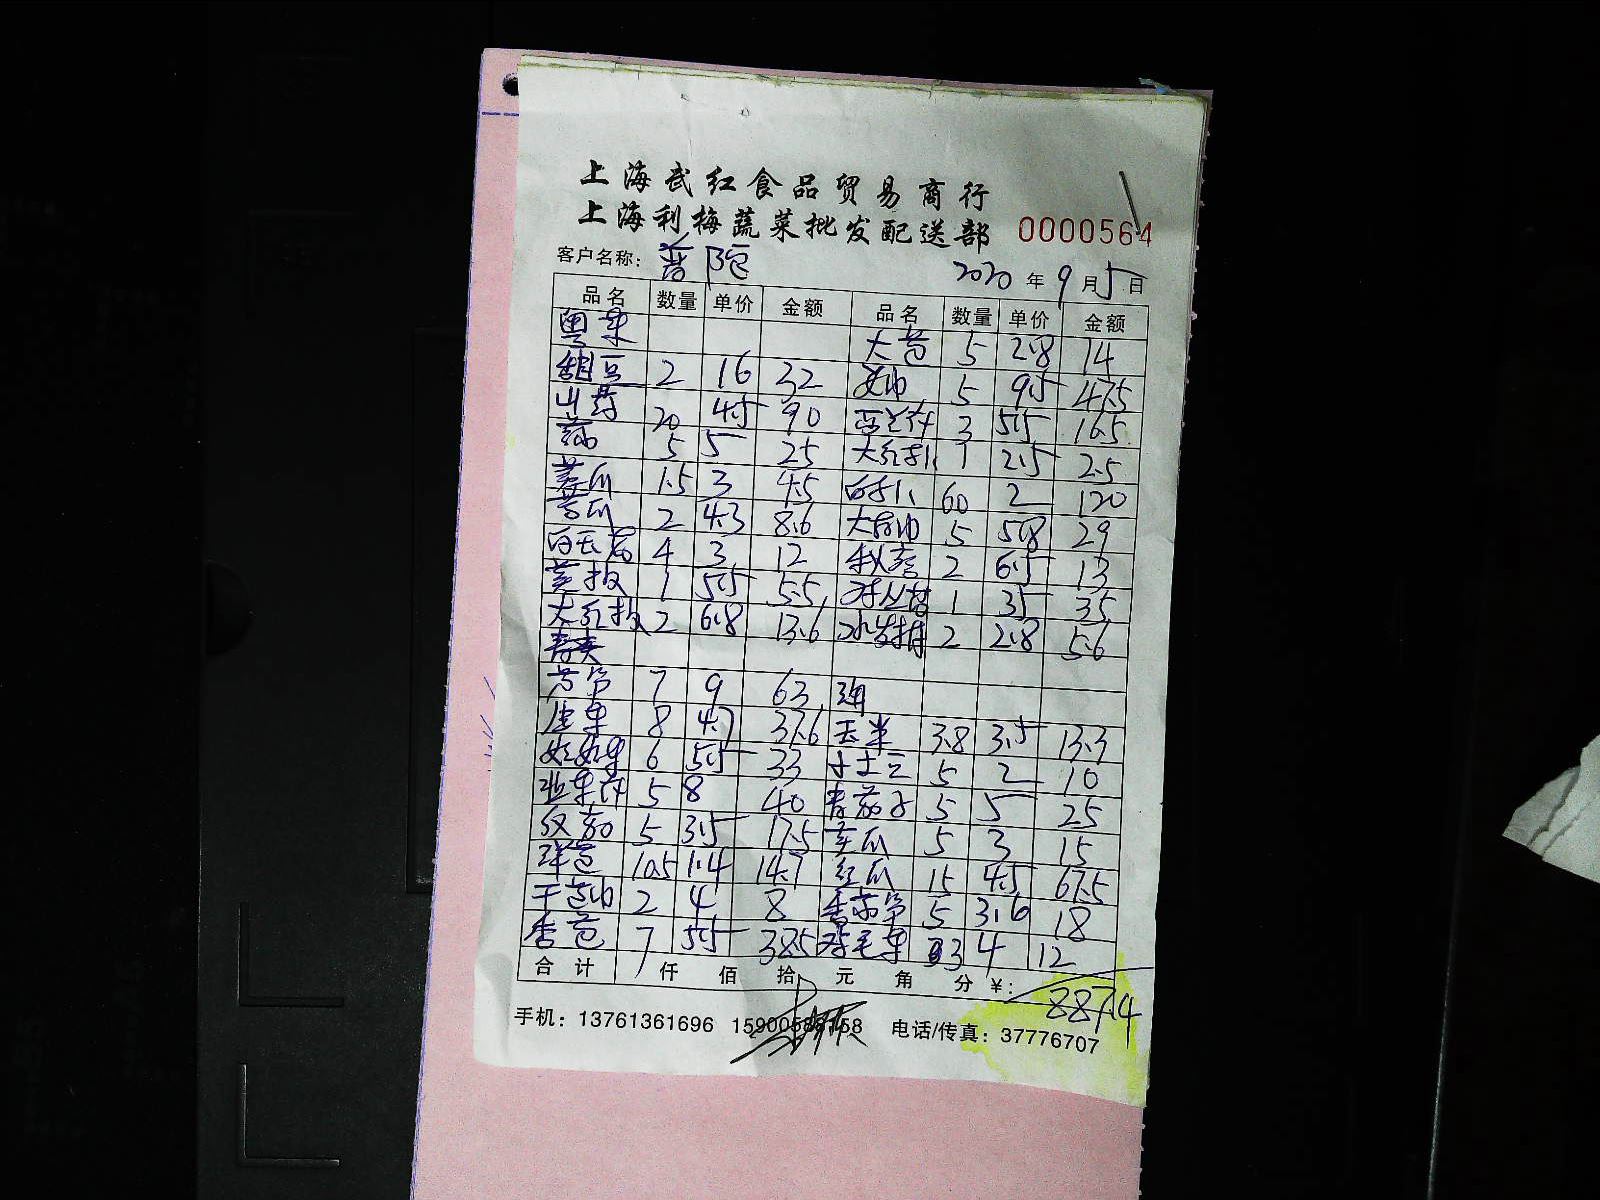 上海武红食品贸易商行
上海利梅蔬菜批发配送部 0000564
客户名称: 普陀 2020 年 9 月 5 日
品名 数量 单价 金额 品名 数量 单价 金额
粤菜 大葱 5 2.8 14
甜豆 2 16 32 5 9.5 47.5
山药 20 4.5 90 西兰花 3 5.5 16.5
5 5 25 大红 1 2.5 2.5
黄瓜 1.5 3 4.5 60 2 120
苦瓜 2 4.3 8.6 5 5.8 29
4 3 12 秋葵 2 6.5 13
黄椒 1 5.5 5.5 1 35 35
大红椒 2 6.8 13.6 2 2.8 5.6
芦笋 7 9 63
生菜 8 4.7 37.6 玉米 3.8 3.5 13.3
娃娃菜 6 5.5 33 小土豆 5 2 10
5 8 40 青茄子 5 5 25
5 3.5 17.5 冬瓜 5 3 15
洋葱 10.5 1.4 14.7 15 4.5 67.5
干葱 2 4 8 5 3.6 18
香葱 7 5.5 38.5 鸡毛菜 3 4 12
合计 仟 佰 拾 元 角 分 ¥: 887.4
手机: 13761361696 15900588758 电话/传真: 37776707